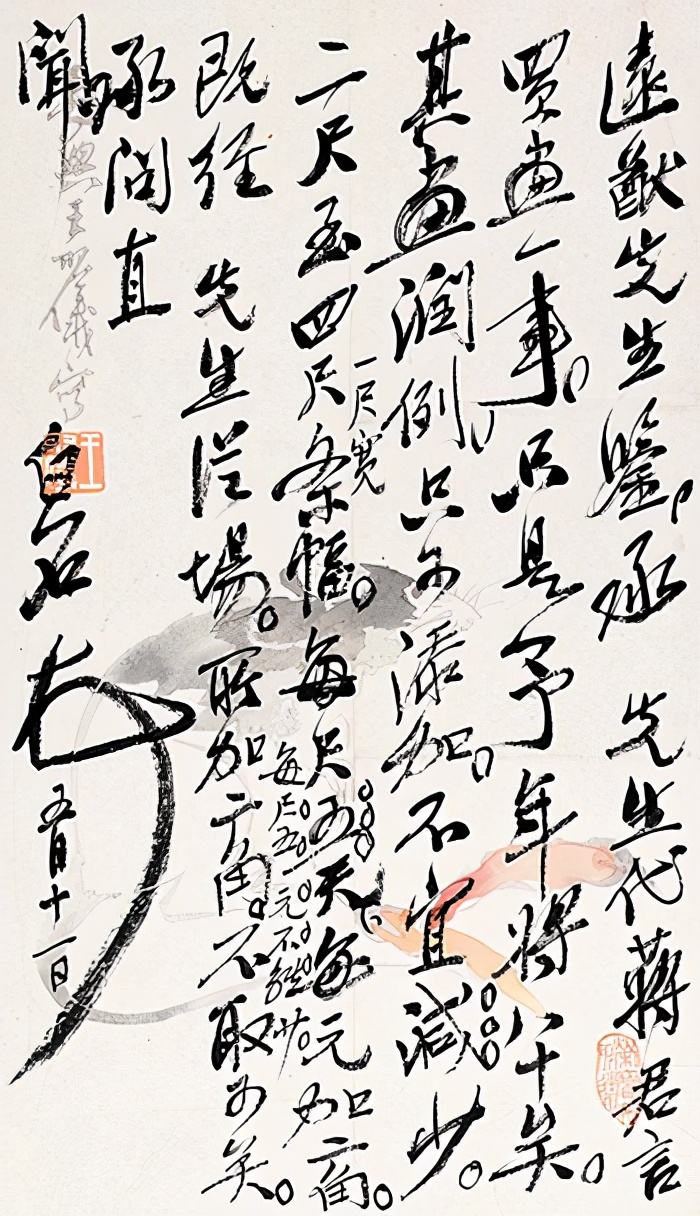 遠猷先生鑒。承 先生代蔣君言
買畫一事。只是予年將八十矣。
其畫潤例。只可添加。不宜減少。
二尺至四尺條幅。每尺五元。每元加二角。
一尺寬
每尺五元不能少
既經 先生從場。所加二角。不取可矣。
承問直
聞
白石
五月十一日